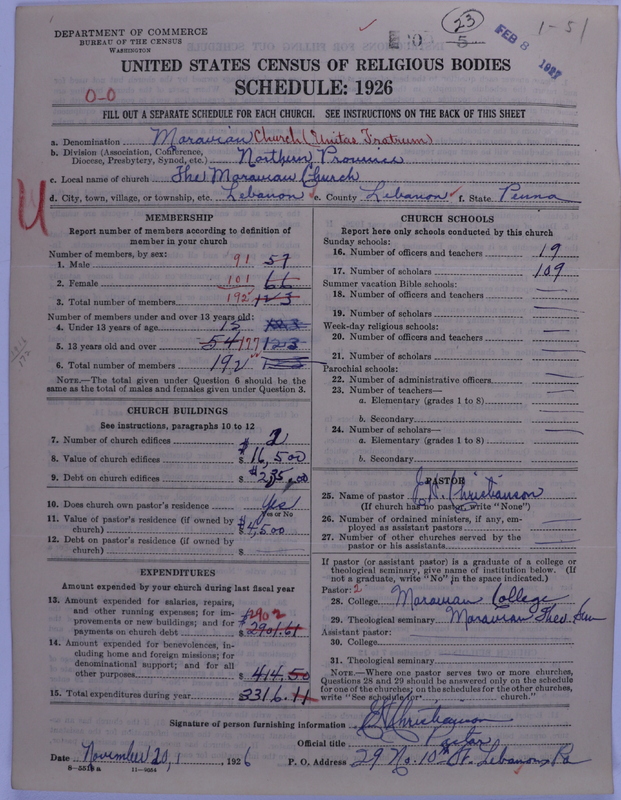 DEPARTMENT OF COMMERCE
BUREAU OF THE CENSUS
WASHINGTON
23
5
FEB 8 1927
1-51
UNITED STATES CENSUS OF RELIGIOUS BODIES
SCHEDULE: 1926
0-0
FILL OUT A SEPARATE SCHEDULE FOR EACH CHURCH. SEE INSTRUCTIONS ON THE BACK OF THIS SHEET
a. Denomination Moravian Church (Unitas Fratrum)
b. Division (Association, Conference, Diocese, Presbytery, Synod, etc.) Northern Province
c. Local name of church The Moravian Church
d. City, town, village, or township, etc. Lebanon e. County Lebanon f. State Penna
U
MEMBERSHIP
Report number of members according to definition of
member in your church
Number of members, by sex:
1. Male 91 57
2. Female 101 66
3. Total number of members 192 123
Number of members under and over 13 years old:
4. Under 13 years of age 15
5. 13 years old and over 54 177 123
6. Total number of members 192
NOTE.—The total given under Question 6 should be
the same as the total of males and females given under Question 3.
CHURCH BUILDINGS
See instructions, paragraphs 10 to 12
7. Number of church edifices 2
8. Value of church edifices $ 16,500
9. Debt on church edifices $
10. Does church own pastor's residence? Yes
Yes or No
11. Value of pastor's residence (if owned by
church) $ 4,500
12. Debt on pastor's residence (if owned by
church) $
EXPENDITURES
Amount expended by your church during last fiscal year
13. Amount expended for salaries, repairs,
and other running expenses; for im-
provements or new buildings; and for
payments on church debt $ 2902 2901.61
14. Amount expended for benevolences, in-
cluding home and foreign missions; for
denominational support; and for all
other purposes $ 414.50
15. Total expenditures during year $ 3316.11
CHURCH SCHOOLS
Report here only schools conducted by this church
Sunday schools:
16. Number of officers and teachers 19
17. Number of scholars 109
Summer vacation Bible schools:
18. Number of officers and teachers
19. Number of scholars
Week-day religious schools:
20. Number of officers and teachers
21. Number of scholars
Parochial schools:
22. Number of administrative officers
23. Number of teachers—
a. Elementary (grades 1 to 8)
b. Secondary
24. Number of scholars—
a. Elementary (grades 1 to 8)
b. Secondary
PASTOR
25. Name of pastor E. N. Christianson
(If church has no pastor, write "None")
26. Number of ordained ministers, if any, em-
ployed as assistant pastors
27. Number of other churches served by the
pastor or his assistants
If pastor (or assistant pastor) is a graduate of a college or
theological seminary, give name of institution below. (If
not a graduate, write "No" in the space indicated.)
Pastor: 2
28. College Moravian College
29. Theological seminary Moravian Theo. Sem
Assistant pastor:
30. College
31. Theological seminary
NOTE.—Where one pastor serves two or more churches,
Questions 28 and 29 should be answered only on the schedule
for one of the churches; on the schedules for the other churches,
write "See schedule for church."
Signature of person furnishing information E N Christianson
Official title Pastor
Date November 20, 1926 P. O. Address 29 No. 10th St. Lebanon, Pa
8—551 a 11—9054